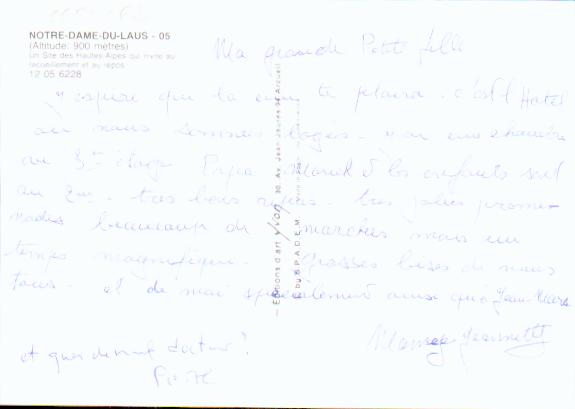 NOTRE-DAME-DU-LAUS - 05
(Altitude: 900 mètres)
Un Site des Hautes-Alpes qui invite au
recueillement et au repos
12 05 6228
Ma grande Petite fille
J'espère que la vue te plaira. c'est l'Hotel
où nous sommes logés. J'ai une chambre
au 3ème étage Papa et les enfants sont
au 2me. très bons repas. très jolies prome-
nades beaucoup de marches mais un
temps magnifique. Grosses bises de nous
tous. et de moi spécialement ainsi qu'à Jean-
Jeannette
et quoi de neuf docteur?
Editions d'art Yvon, 30, Av. Jean-Jaurès 94 Arcueil
© by S.P.A.D.E.M.